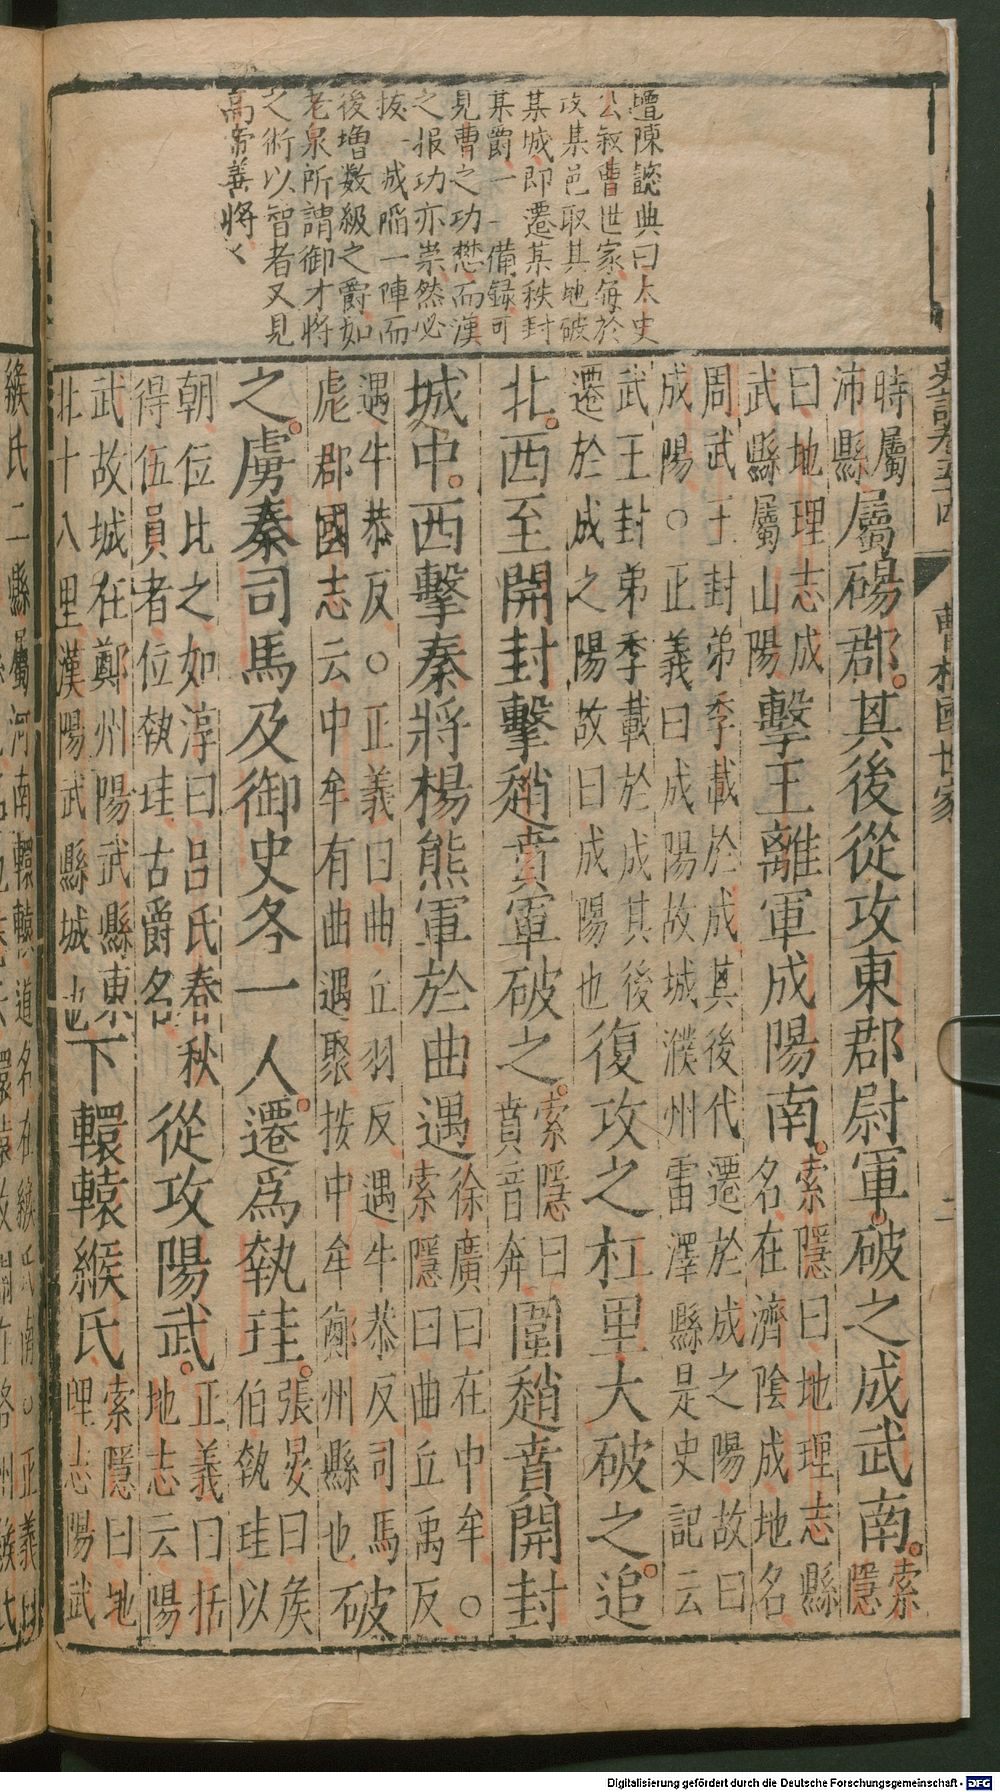 增陳懿典曰太史
公敘曹世家每於
攻某邑取其地破
某城即遷某秩封
某爵一一備録可
見曹之功懋而漢
之报功亦崇然必
拔一城陷一陣而
後增数級之爵如
老泉所謂御才將
之術以智者又見
高帝善將々
史記卷五十四 曹相國世家 二
時屬
沛縣
屬碭郡其後從攻東郡尉軍破之成武南
索
隱
曰地理志成
武縣屬山陽
擊王離軍成陽南
索隱曰地理志縣
名在濟陰成地名
周武王封弟季載於成其後代遷於成之陽故曰
成陽○正義曰成陽故城濮州雷澤縣是史記云
武王封弟季載於成其後
遷於成之陽故曰成陽也
復攻之杠里大破之追
北西至開封擊趙賁軍破之
索隱曰
賁音奔
圍趙賁開封
城中西擊秦將楊熊軍於曲遇
徐廣曰在中牟○
索隱曰曲丘禹反
遇牛恭反○正義曰曲丘羽反遇牛恭反司馬
彪郡國志云中牟有曲遇聚按中牟鄭州縣也
破
之虜秦司馬及御史各一人遷爲執珪
張晏曰矦
伯執珪以
朝位比之如淳曰呂氏春秋
得伍員者位執珪古爵名
從攻陽武
正義曰括
地志云陽
武故城在鄭州陽武縣東
北十八里漢陽武縣城也
下轘轅緱氏
索隱曰地
理志陽武
緱氏二縣屬河南轘轅道名在緱氏南○正義曰
Digitalisierung gefördert durch die Deutsche Forschungsgemeinschaft - DFG